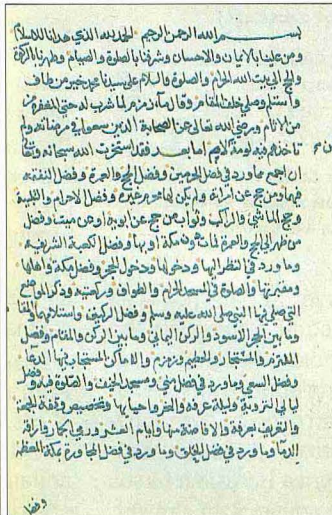 بسم الله الرحمن الرحيم الحمد لله الذي هدانا للاسلام
ومن علينا بالايمان والاحسان وشرفنا بالصلوة والصيام وطهرنا بالزكوة
والحج الى بيت الله الحرام والصلوة والسلام على سيدنا محمد خير من طاف
واستلم وصلى خلف المقام وقال ماء زمزم لما شرب له حتى المغفرة
من الاثام ورضي الله تعالى عن الصحابة الذين سعوا في مرضاته ولم
تاخذهم فيه لومة لايم اما بعد فقد استخرت الله سبحانه وتعالى
ان اجمع ما ورد في فضل الحرمين وفضل الحج والعمرة وفضل النفقة
فيهما ومن حج عن امراة ولم يكن لها محرم غيره وفضل الاحرام والتلبية
وحج الماشي والراكب وثواب من حج عن ابويه او عن ميت وفضل
من ظهر الى الحج والعمرة فمات في مكة او بها وفضل الكعبة الشريفة
وما ورد في النظر اليها ودخولها ودخول الحجر وفضل مكة واهلها
ومقبرتها والصلوة في المسجد الحرام والطواف وركعتيه وذكر المواضع
التي صلى فيها النبي صلى الله عليه وسلم وفضل الركنين واستلامهما
وما بين الحجر الاسود والركن اليماني وما بين الركن والمقام وفضل
الملتزم والمستجار والحطيم وزمزم والاماكن المستجاب فيها الدعا
وفضل السعي وما ورد في فضل منى ومسجد الخيف والصلوة فيه وفضل
ليالي التروية وليلة عرفة والنحر واحيائها وتخصيص وقفة الجمعة
والتعريف بعرفة والافاضة منها وايام العشر ورمي الجمار واراقة
الدما وما ورد في فضل الحلق وما ورد في فضل المجاورة بمكة المعظمة
وفضل